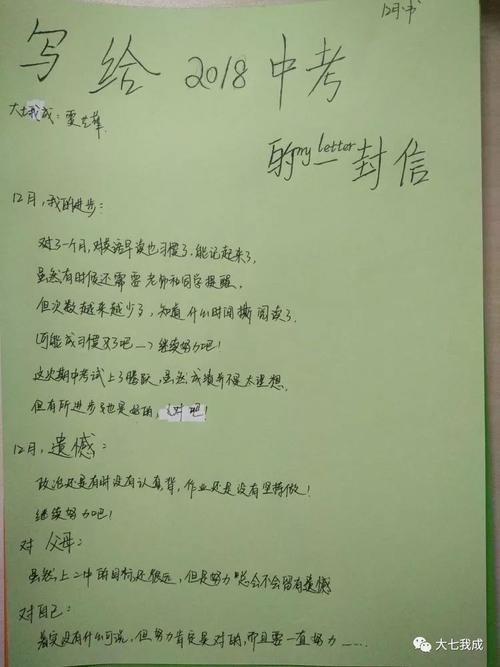 12月书
写给2018中考
大七我成:
的my letter一封信
12月,我的进步:
对了一个月,对英语早读也习惯了,能记起来了,
虽然有时候还需要老师和同学提醒,
但次数越来越少了,知道什么时间撕阅读了.
可能成习惯了吧一7继续努力吧!
这次期中考试上了腾跃,虽然成绩并不是太理想,
但有所进步也是好的,对吧!
12月,遗憾:
政治还是有时没有认真背,作业还是没有坚持做!
继续努力吧!
对父母:
虽然上二中的目标还很远,但是努力总会不会留有遗憾
对自己:
着实没有什么可说,但努力肯定是对的,而且要一直努力......
大七我成